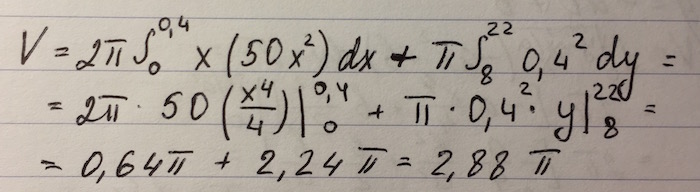 V = 2π ∫₀^0,4 x (50x²) dx + π ∫₈^22 0,4² dy =
= 2π · 50 (x⁴/4) |₀^0,4 + π · 0,4² · y |₈^22 =
= 0,64π + 2,24π = 2,88π